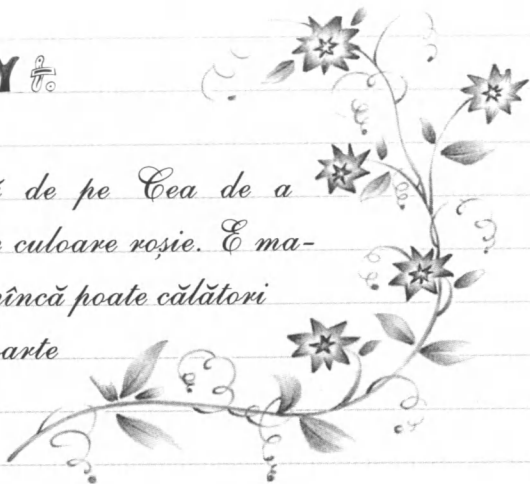 de pe Cea de a
culoare roșie. E ma-
poate călători